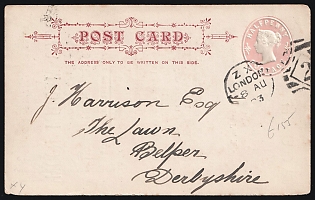 HALFPENNY
POST CARD
THE ADDRESS ONLY TO BE WRITTEN ON THIS SIDE.
ZX
LONDON
8 AU
J. Harrison Esq
The Lawn
Belper
Derbyshire
£155.
XY